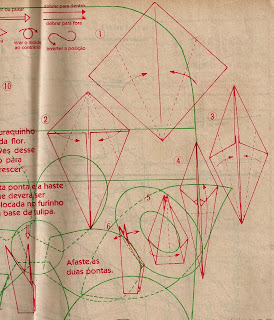 dobrar para dentro
dobrar para fora
virar o molde
ao contrário
inverter a posição
1
10
2
3
uraquinho
da flor.
vés desse
o pára
rescer".
4
ta ponta e a haste
e deverá ser
locada no furinho
a base da tulipa.
5
6
Afaste as
duas pontas.